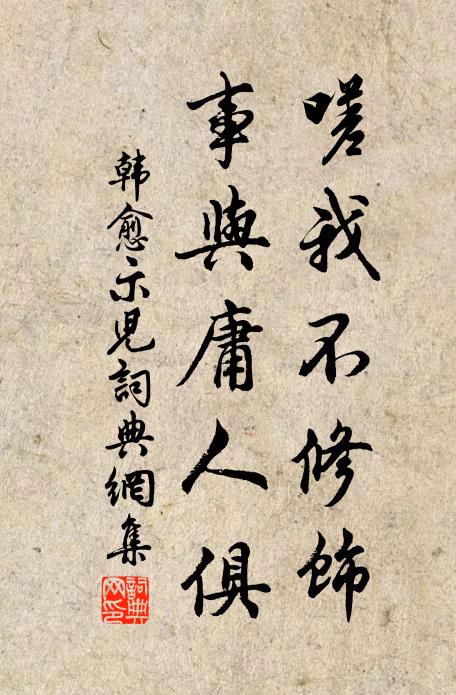 嗟我不修飾
事與庸人俱
韩愈示児詞典網集
詞典網印